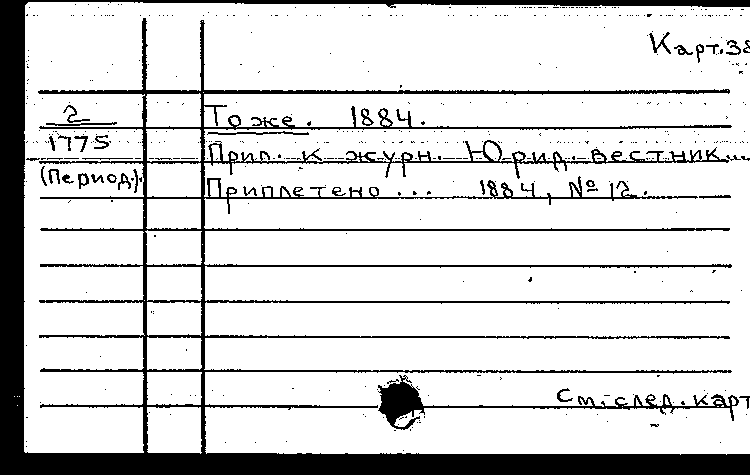 Карт. 38
2
1775
(Период.)
То же. 1884.
Прил. к журн. Юрид. вестник...
Приплетено... 1884, № 12.
См. след. карт